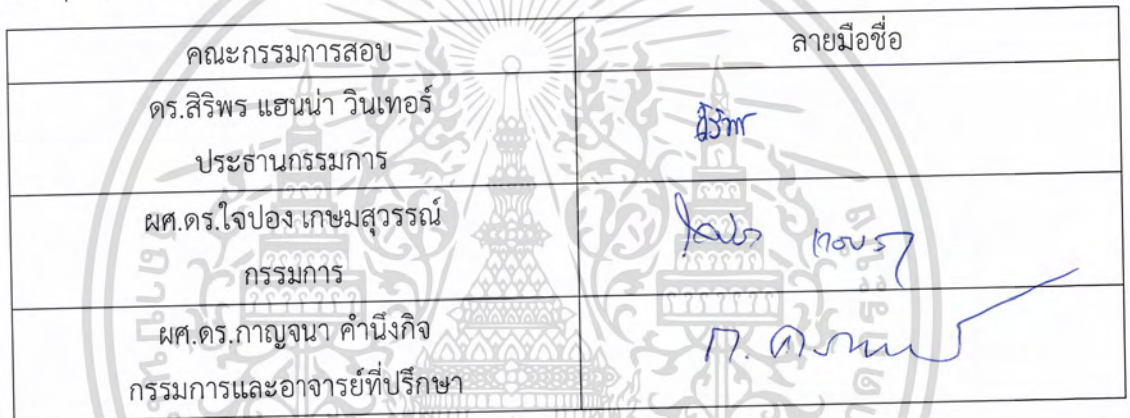 คณะกรรมการสอบ ลายมือชื่อ
ดร.สิริพร แฮนน่า วินเทอร์
ประธานกรรมการ
สิริพร
ผศ.ดร.ใจปอง เกษมสุวรรณ์
กรรมการ
ผศ.ดร.กาญจนา คำนึงกิจ
กรรมการและอาจารย์ที่ปรึกษา